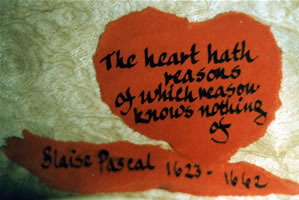 The heart hath
reasons
of which reason
knows nothing
of
Blaise Pascal 1623 - 1662